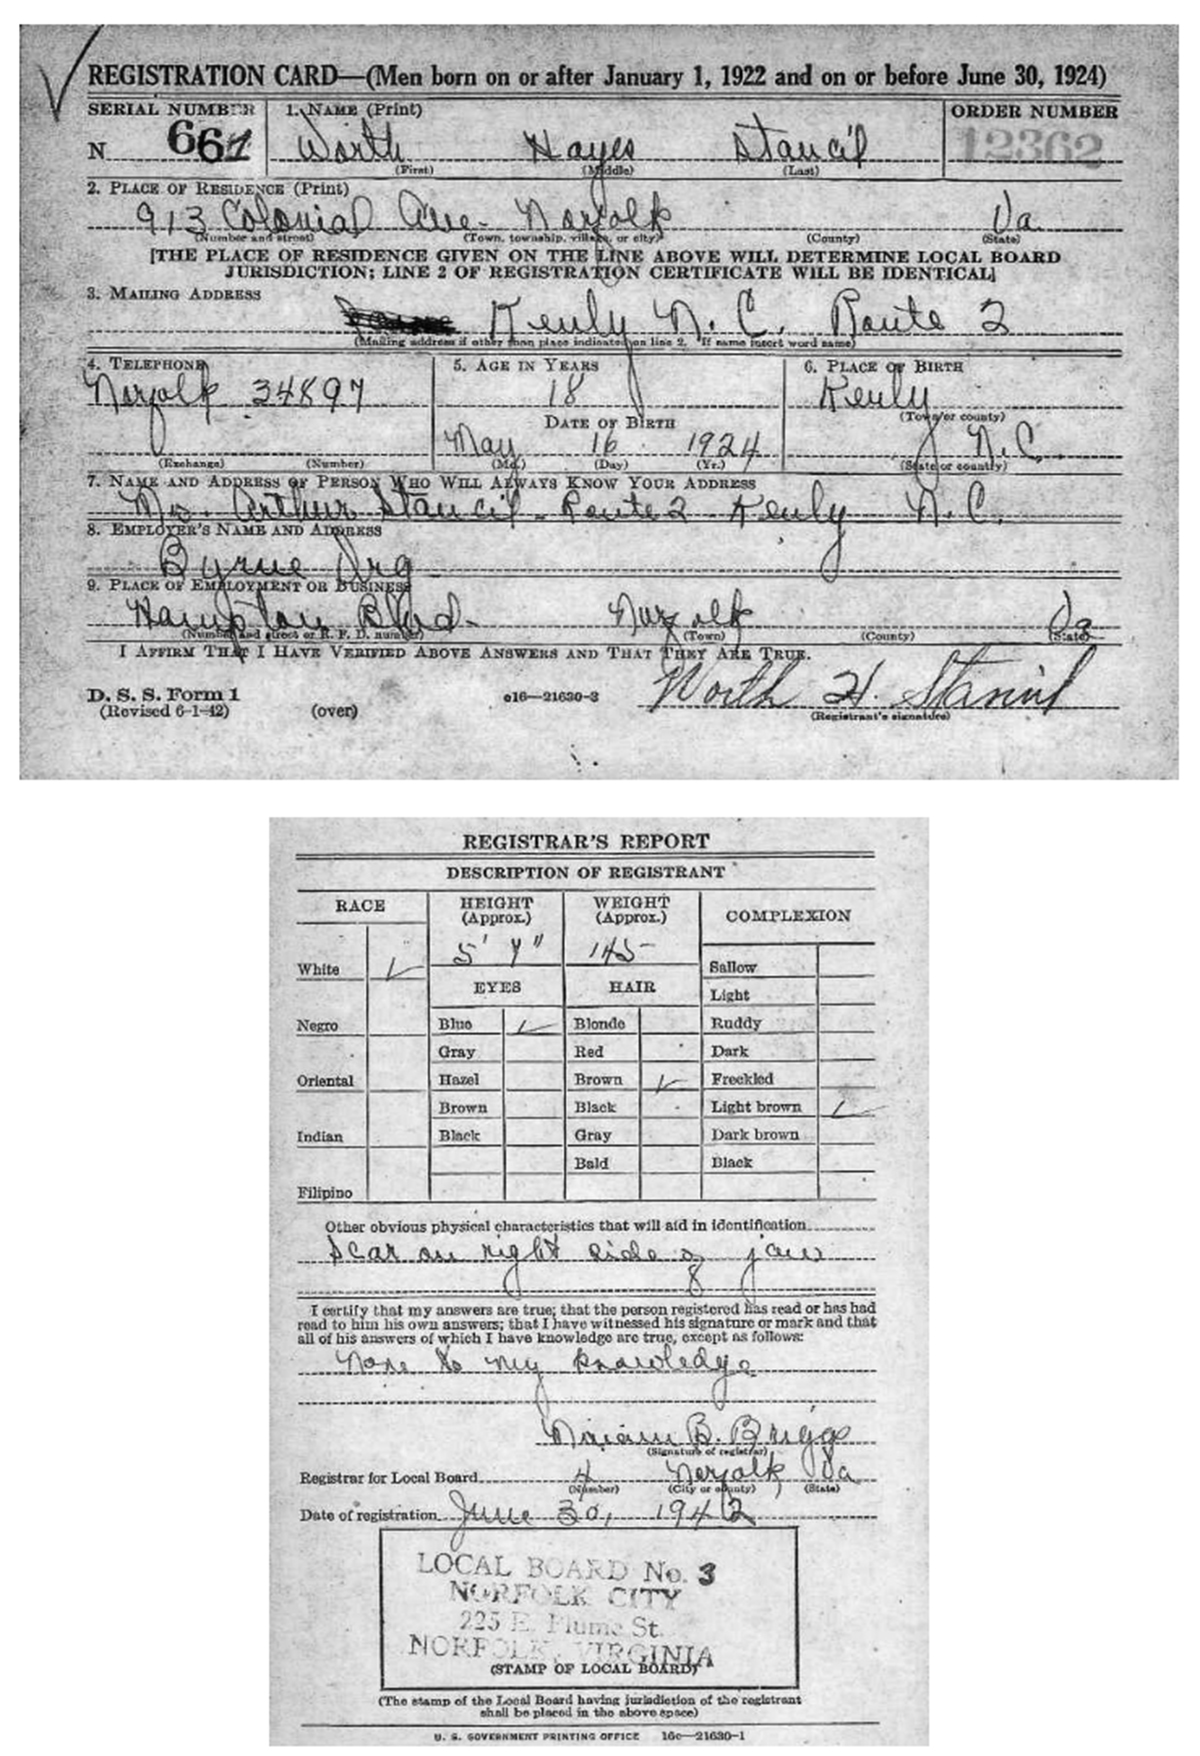 REGISTRATION CARD—(Men born on or after January 1, 1922 and on or before June 30, 1924)
SERIAL NUMBER 1. NAME (Print) ORDER NUMBER
N 661 Worth Hayes Stancil 12362
(First) (Middle) (Last)
2. PLACE OF RESIDENCE (Print)
913 Colonial Ave- Norfolk Va.
(Number and street) (Town, township, village, or city) (County) (State)
[THE PLACE OF RESIDENCE GIVEN ON THE LINE ABOVE WILL DETERMINE LOCAL BOARD
JURISDICTION; LINE 2 OF REGISTRATION CERTIFICATE WILL BE IDENTICAL]
3. MAILING ADDRESS
Kenly N. C. Route 2
(Mailing address if other than place indicated on line 2. If same insert word same)
4. TELEPHONE 5. AGE IN YEARS 6. PLACE OF BIRTH
Norfolk 34897 18 Kenly
DATE OF BIRTH (Town or county)
May 16 1924 N.C.
(Exchange) (Number) (Mo.) (Day) (Yr.) (State or country)
7. NAME AND ADDRESS OF PERSON WHO WILL ALWAYS KNOW YOUR ADDRESS
Arthur Stancil - Route 2 Kenly N. C.
8. EMPLOYER'S NAME AND ADDRESS
Byrne Org
9. PLACE OF EMPLOYMENT OR BUSINESS
Hampton Blvd. Norfolk Va
(Number and street or R. F. D. number) (Town) (County) (State)
I AFFIRM THAT I HAVE VERIFIED ABOVE ANSWERS AND THAT THEY ARE TRUE.
D. S. S. Form 1 Worth H. Stancil
(Revised 6-1-42) (over) c16—21630-2 (Registrant's signature)
REGISTRAR'S REPORT
DESCRIPTION OF REGISTRANT
RACE HEIGHT (Approx.) WEIGHT (Approx.) COMPLEXION
5' 145
White EYES HAIR Sallow
Light
Negro Blue Blonde Ruddy
Gray Red Dark
Oriental Hazel Brown Freckled
Brown Black Light brown
Indian Black Gray Dark brown
Bald Black
Filipino
Other obvious physical characteristics that will aid in identification
Scar on right side of jaw
I certify that my answers are true; that the person registered has read or has had
read to him his own answers; that I have witnessed his signature or mark and that
all of his answers of which I have knowledge are true, except as follows:
None to my knowledge
Miriam B. Briggs
(Signature of registrar)
Registrar for Local Board 4 Norfolk Va
(Number) (City or county) (State)
Date of registration June 30, 1942
LOCAL BOARD No. 3
NORFOLK CITY
225 E. Plume St.
NORFOLK, VIRGINIA
(STAMP OF LOCAL BOARD)
(The stamp of the Local Board having jurisdiction of the registrant
shall be placed in the above space)
U. S. GOVERNMENT PRINTING OFFICE 16c—21630-1